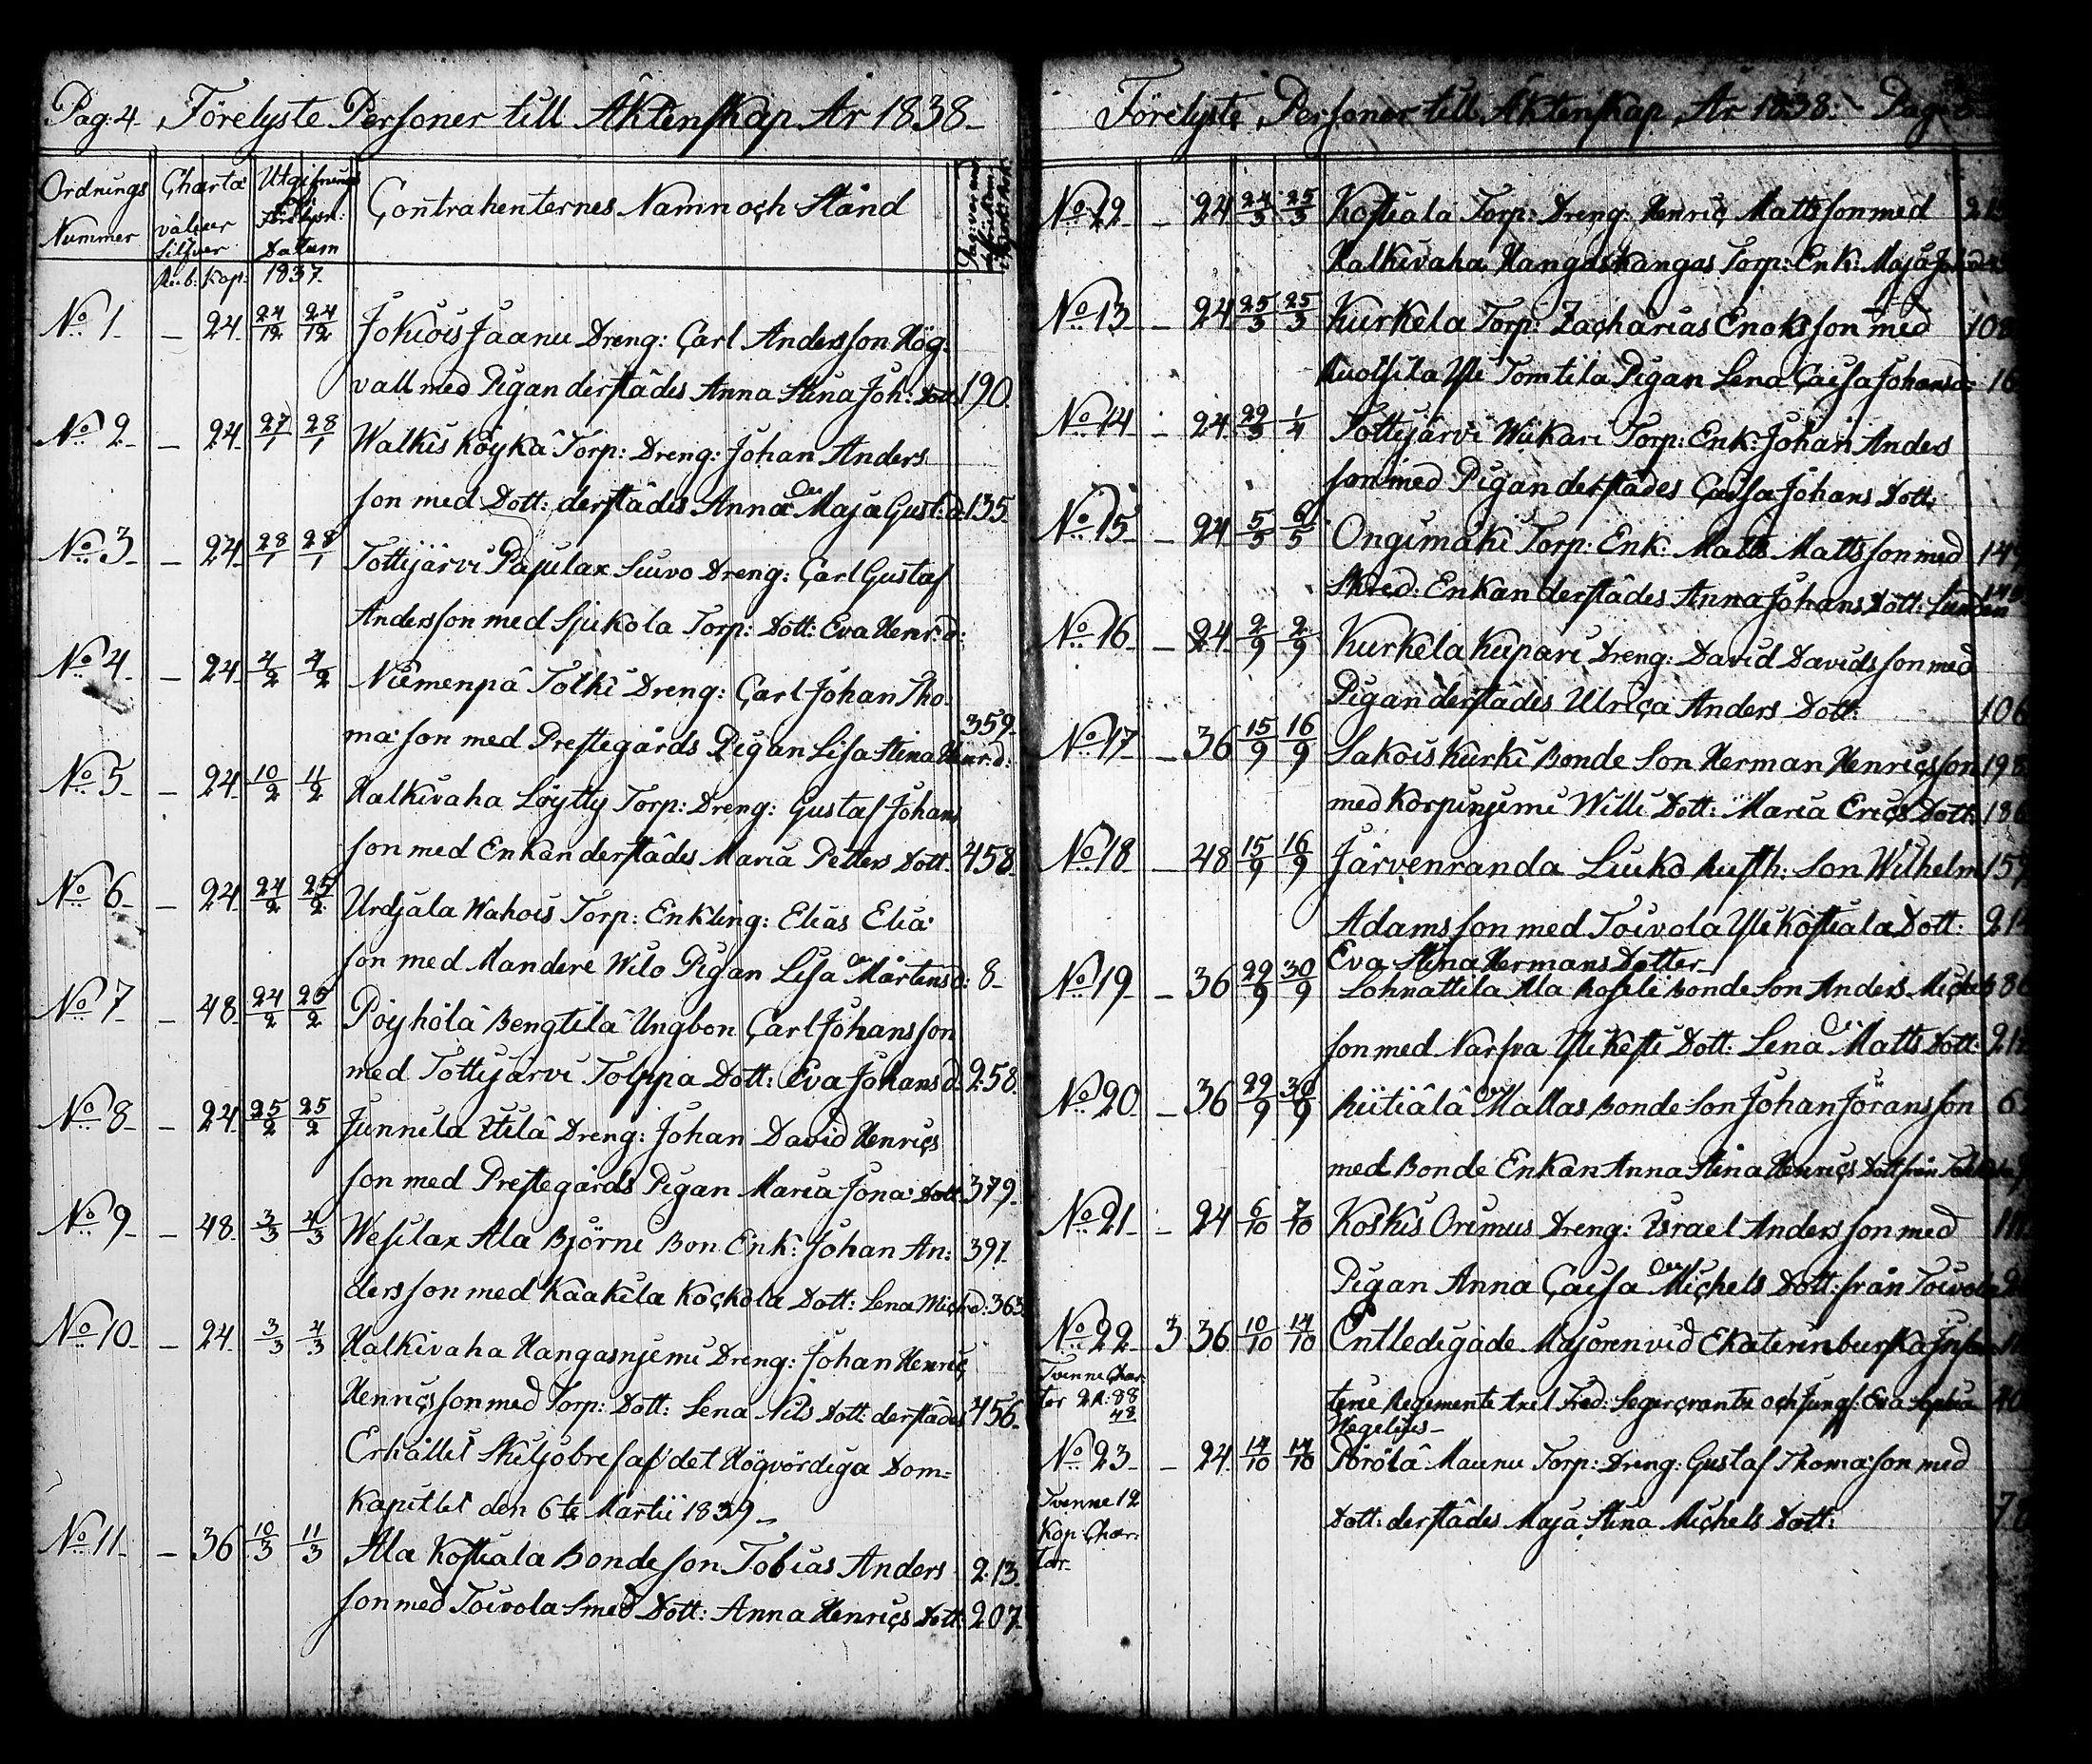 Pag: 4. Förelyste Personer till Äktenskap År 1838
Ordnings Nummer
Charta valeur Silfver
Utgifnings och Förelysn: Datum
Contrahenternes Namn och Stånd
Ru.b: Kop: 1837.
No 1. — 24. 24/12 24/12 Jokiois Jaanu Dreng: Carl Andersson Hög-
vall med Pigan derstädes Anna Stina Joh: Dott: 190.
No 2. — 24. 27/1 28/1 Walkis Köykä Torp: Dreng: Johan Anders
son med Dott: derstädes Anna Maja Gust: d: 135.
No 3. — 24. 28/1 28/1 Tottijärvi Pajulax Suvo Dreng: Carl Gustaf
Andersson med Sjukola Torp: Dott: Eva Henr: d:
No 4. — 24. 4/2 4/2 Niemenpä Tolki Dreng: Carl Johan Tho-
ma:son med Prestegårds Pigan Lisa Stina Henr: d: 359.
No 5. — 24. 10/2 11/2 Halkivaha Löytty Torp: Dreng: Gustaf Johans
son med Enkan derstädes Maria Petters Dott: 458.
No 6. — 24. 24/2 25/2 Urdjala Wahois Torp: Enkling: Elias Elia:
son med Mandere Wilo Pigan Lisa Mårtens d: 8.
No 7. — 48. 24/2 25/2 Pöyhölä Bengtilä Ungbon: Carl Johansson
med Tottijärvi Tolppa Dott: Eva Johans d: 258.
No 8. — 24. 25/2 25/2 Junnila Ylilä Dreng: Johan David Henrics
son med Prestegårds Pigan Maria Jona: Dott: 379.
No 9. — 48. 3/3 4/3 Wesilax Ala Björni Bon: Enk: Johan An: 391.
dersson med Kaakila Kockola Dott: Lena Mich: d: 363.
No 10. — 24. 3/3 4/3 Halkivaha Hangasnjemi Dreng: Johan Henric
Henricsson med Torp: Dott: Lena Nils Dott: derstädes 456.
Erhållit Skiljobref af det Högvördiga Dom=
Kapitlet den 6te Martii 1839 —
No 11. — 36 10/3 11/3 Ala Kostiala Bonde son Tobias Anders 213.
son med Toivola Smed Dott: Anna Henrics Dott: 207.
Förelyste Personer till Äktenskap, År 1838. Pag: 5
No 22 — 24 24/3 25/3 Kostiala Torp: Dreng: Henric Mattsson med
Halkivaha Hangaskangas Torp: Enk: Maja
No 13 — 24 25/3 25/3 Kurkela Torp: Zacharias Enoksson med 102
Huolsila Yli Tomtila Pigan Lena Caisa Johans d: 16
No 14 — 24. 29/3 1/4 Tottijärvi Wickari Torp: Enk: Johan Anders
son med Pigan derstädes Caisa Johans Dott:
No 15 — 24 5/5 6/5 Ongimäki Torp: Enk: Matts Mattsson med
Skred: Enkan derstädes Anna Johans Dott:
No 16 — 24. 2/9 2/9 Kurkela Kupari Dreng: David Davidsson med
Pigan derstädes Ulrica Anders Dott: 106
No 17 — 36 15/9 16/9 Sakois Kurki Bonde Son Herman Henricsson 198
med Korpinjemi Willi Dott: Maria Erics Dott: 186
No 18 — 48 15/9 16/9 Järvenranda Liuko Rusth: Son Wilhelm 157
Adamsson med Toivola Yli Kostiala Dott: 214
Eva Stina Hermans Dotter
No 19 — 36 29/9 30/9 Lohnattila Ala Rosili Bonde Son Anders Michels 86
son med Narfva Yli Kesti Dott: Lena Matts Dott: 212
No 20 — 36 29/9 30/9 Riitiälä Mallas Bonde Son Johan Jöransson 6
med Bonde Enkan Anna Stina Henrics Dott från
No 21 — 24 6/10 7/10 Koskis Orimus Dreng: Israel Andersson med
Pigan Anna Caisa Michels Dott: från Toivola
No 22 3 36 10/10 14/10 Entledigade Majoren vid Ekaterinburska Infan
Tvenne Char
ter 2 R: 88
48
terie Regimente Axel Fred: Segercrantz och Jungf: Eva Sophia
Wegelius
No 23 — 24. 14/10 14/10 Pörölä Maunu Torp: Dreng: Gustaf Thoma:son med
Tvenne 12
Kop: Char:
tor
Dott: derstädes Maja Stina Michels Dott: